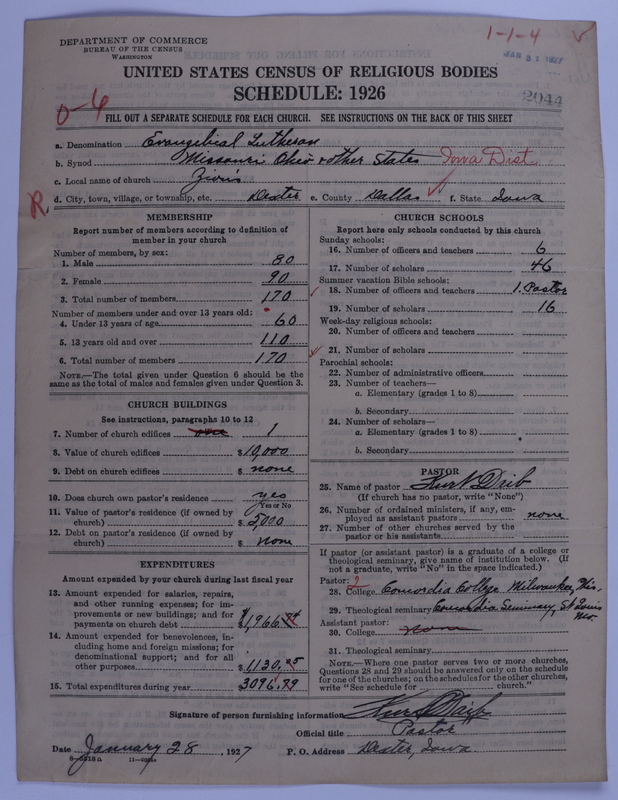 DEPARTMENT OF COMMERCE
BUREAU OF THE CENSUS
WASHINGTON
1-1-4
JAN 31 1927
2044
UNITED STATES CENSUS OF RELIGIOUS BODIES
SCHEDULE: 1926
0-6
FILL OUT A SEPARATE SCHEDULE FOR EACH CHURCH. SEE INSTRUCTIONS ON THE BACK OF THIS SHEET
a. Denomination Evangelical Lutheran
b. Synod Missouri Ohio & other States Iowa Dist
c. Local name of church Zion's
R.
d. City, town, village, or township, etc. Dexter e. County Dallas f. State Iowa
MEMBERSHIP
Report number of members according to definition of
member in your church
Number of members, by sex:
1. Male 80
2. Female 90
3. Total number of members 170
Number of members under and over 13 years old:
4. Under 13 years of age 60
5. 13 years old and over 110
6. Total number of members 170
NOTE.—The total given under Question 6 should be
same as the total of males and females given under Question 3.
CHURCH BUILDINGS
See instructions, paragraphs 10 to 12
7. Number of church edifices one 1
8. Value of church edifices $10,000
9. Debt on church edifices $ none
10. Does church own pastor's residence yes
Yes or No
11. Value of pastor's residence (if owned by
church) $ 5,000
12. Debt on pastor's residence (if owned by
church) $ none
EXPENDITURES
Amount expended by your church during last fiscal year
13. Amount expended for salaries, repairs,
and other running expenses; for im-
provements or new buildings; and for
payments on church debt $1,966.
14. Amount expended for benevolences, in-
cluding home and foreign missions; for
denominational support; and for all
other purposes $1130.25
15. Total expenditures during year 3096.
CHURCH SCHOOLS
Report here only schools conducted by this church
Sunday schools:
16. Number of officers and teachers 6
17. Number of scholars 46
Summer vacation Bible schools:
18. Number of officers and teachers 1. Pastor
19. Number of scholars 16
Week-day religious schools:
20. Number of officers and teachers
21. Number of scholars
Parochial schools:
22. Number of administrative officers
23. Number of teachers—
a. Elementary (grades 1 to 8)
b. Secondary
24. Number of scholars—
a. Elementary (grades 1 to 8)
b. Secondary
PASTOR
25. Name of pastor
(If church has no pastor, write "None")
26. Number of ordained ministers, if any, em-
ployed as assistant pastors none
27. Number of other churches served by the
pastor or his assistants
If pastor (or assistant pastor) is a graduate of a college or
theological seminary, give name of institution below. (If
not a graduate, write "No" in the space indicated.)
Pastor: 2
28. College Concordia College Milwaukee, Wis.
29. Theological seminary Concordia Seminary, St Louis
Mo
Assistant pastor:
30. College none
31. Theological seminary
NOTE.—Where one pastor serves two or more churches,
Questions 28 and 29 should be answered only on the schedule
for one of the churches; on the schedules for the other churches,
write "See schedule for church."
Signature of person furnishing information
Official title Pastor
Date January 28, 1927 P. O. Address Dexter, Iowa